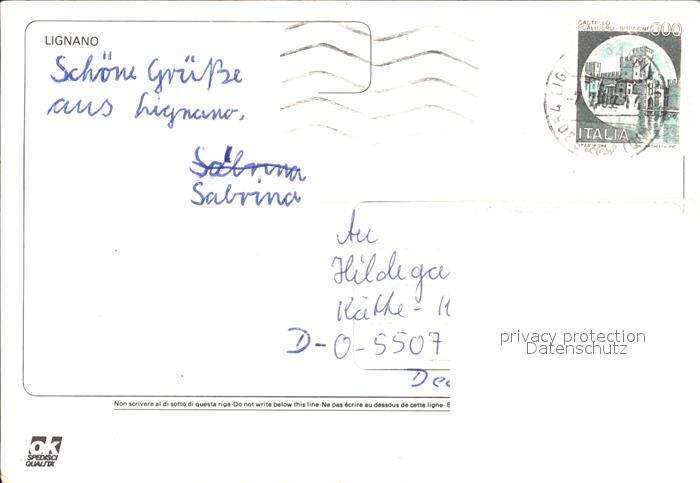 LIGNANO
Schöne Grüße
aus Lignano.
Sabrina
Sabrina
CASTELLO
SCALIGERO - SIRMIONE 600
ITALIA
An
Hildega
Käthe-
D-O-5507
privacy protection
Datenschutz
Non scrivere al di sotto di questa riga-Do not write below this line-Ne pas écrire au dessous de cette ligne-
ok
SPEDISCI
QUALITA'